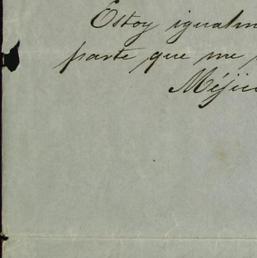 Estoy igualm
parte que me
Méjic